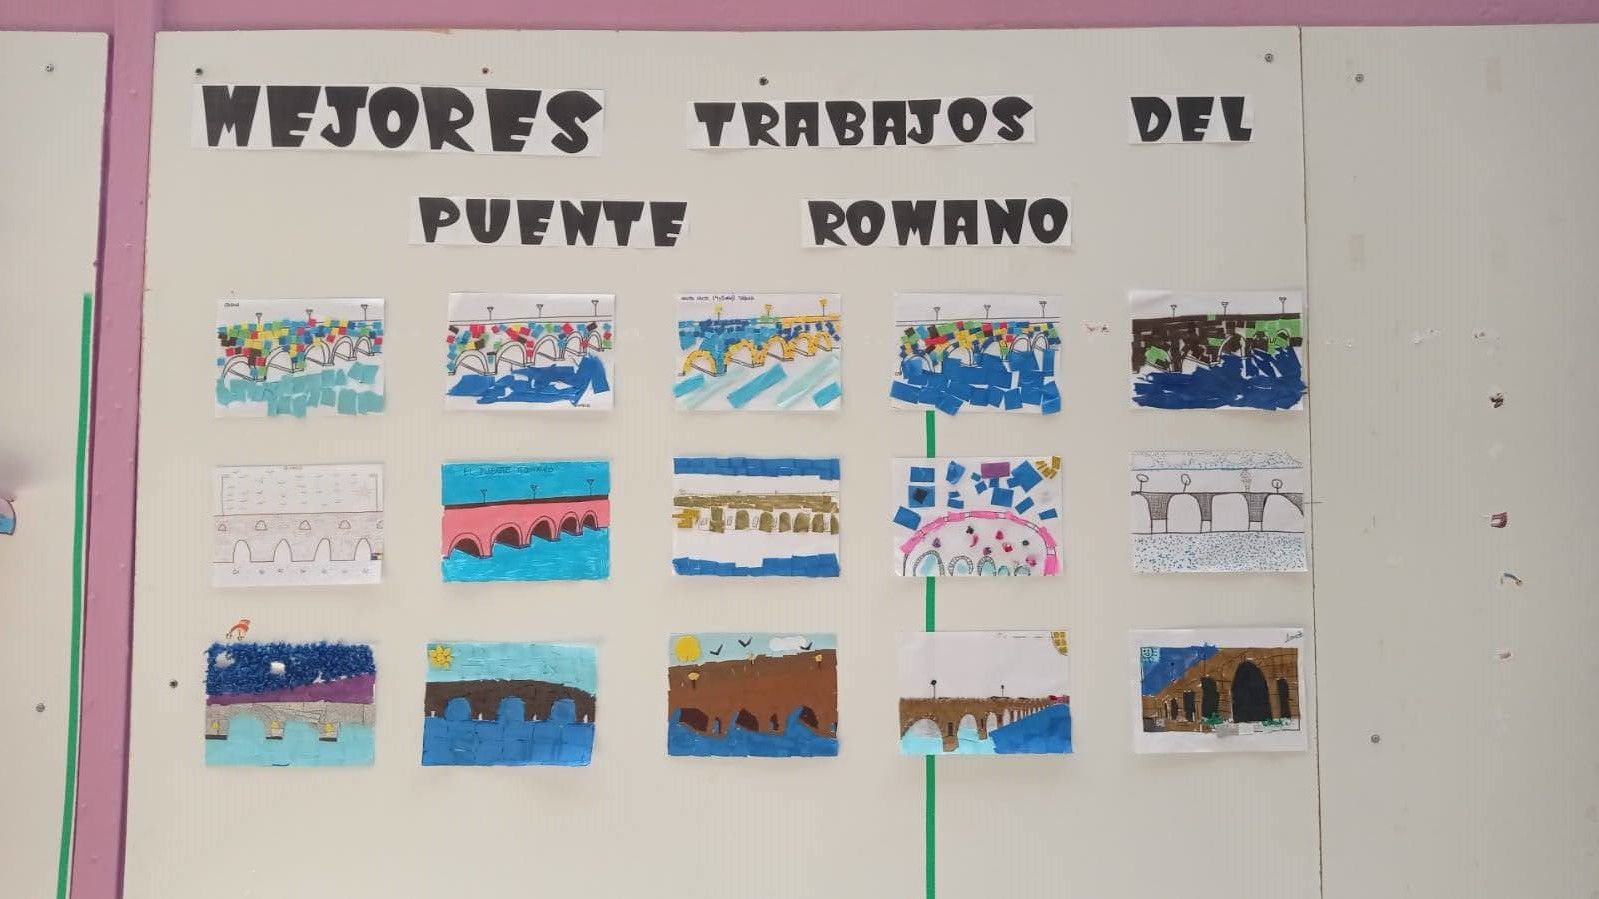 MEJORES TRABAJOS DEL
PUENTE ROMANO
EL PUENTE ROMANO